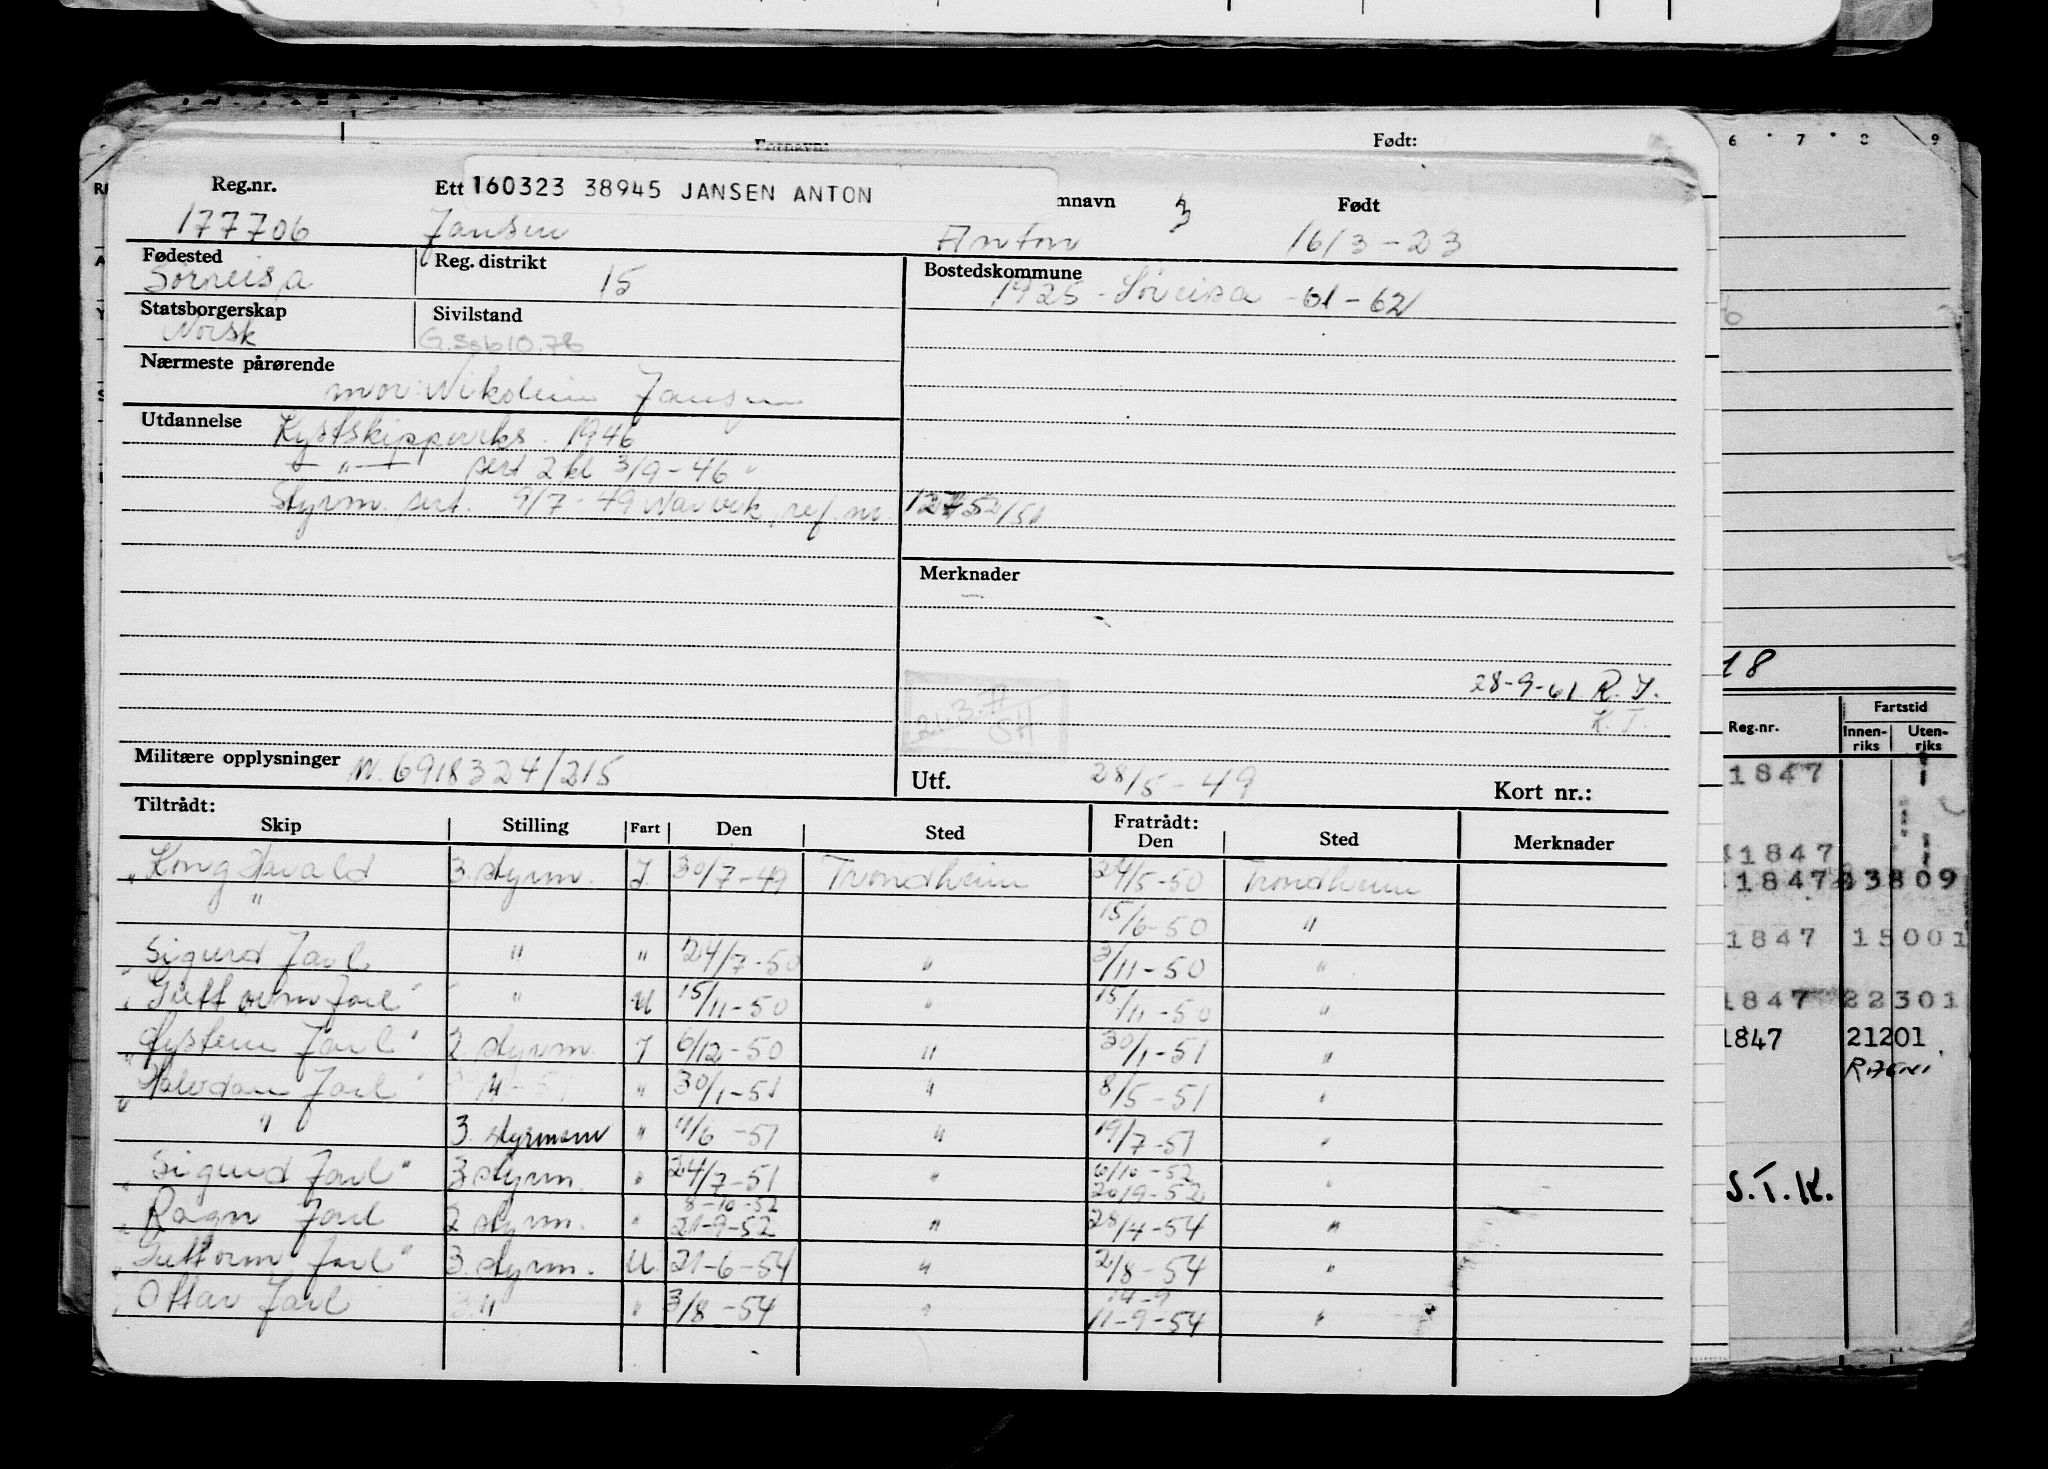 Fornavn: Født:
6 7 8 9
Reg.nr. Ett 160323 38945 JANSEN ANTON mnavn 3 Født
177706 Jansen Anton 16/3-23
Fødested Sørreisa Reg. distrikt 15 Bostedskommune 1925 - Sørreisa -61-62
Statsborgerskap Norsk Sivilstand G.
Nærmeste pårørende
mor: Nikoline Jansen
Utdannelse Kystskipperks. 1946
— " — sert 2 kl 3/9-46
Styrm. sert. 9/7-49 Narvik, ref. nr. 12752/51
Merknader
18
28-9-61 R.Y.
K.T.
Militære opplysninger N. 6918324/215 Utf. 28/5-49 Kort nr.:
Tiltrådt: Fratrådt:
Skip Stilling Fart Den Sted Den Sted Merknader
"Kong Harald 3. styrm. I. 30/7-49 Trondheim 24/5-50 Trondheim
" 15/6-50 "
Sigurd Jarl " " 24/7-50 " 3/11-50 "
"Guttorm Jarl" " U 15/11-50 " 15/11-50 "
"Øystein Jarl" 2. styrm. I 6/12-50 " 30/1-51 "
"Halvdan Jarl" " " 30/1-51 " 8/5-51 "
" 3. styrmann " 11/6-51 " 19/7-51 "
"Sigurd Jarl" 3 styrm. " 24/7-51 " 6/10-52 20/9-52 "
"Ragn Jarl 2 styrm. " 8-10-52 21-9-52 " 28/4-54 "
"Guttorm Jarl" 3. styrm. U. 21-6-54 " 2/8-54 "
"Ottar Jarl 3. " " 3/8-54 " 11-9-54 "
Reg.nr. Fartstid
Innen-riks Uten-riks
1847
1847
1847 3809
1847 15001
1847 22301
1847 21201
S.T.K.